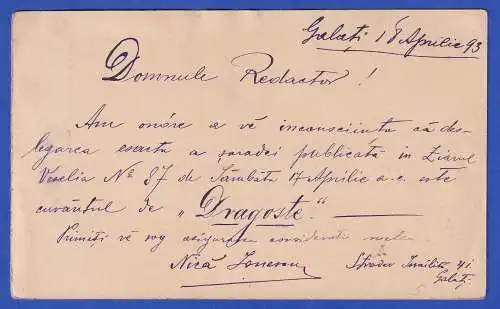 Galați 18 Aprilie 93
Domnule Redactor!
Am onóre a vĕ inconsciința că des-
legarea esactă a șaradei publicată in Ziarul
Veselia No 87 de Sâmbătă 17 Aprilie a.c. este
cuvântul de "Dragoste."
Primiți vĕ rog asigurarea consideratei mele
Nică Ionescu Strada Brăilei 41
Galați.